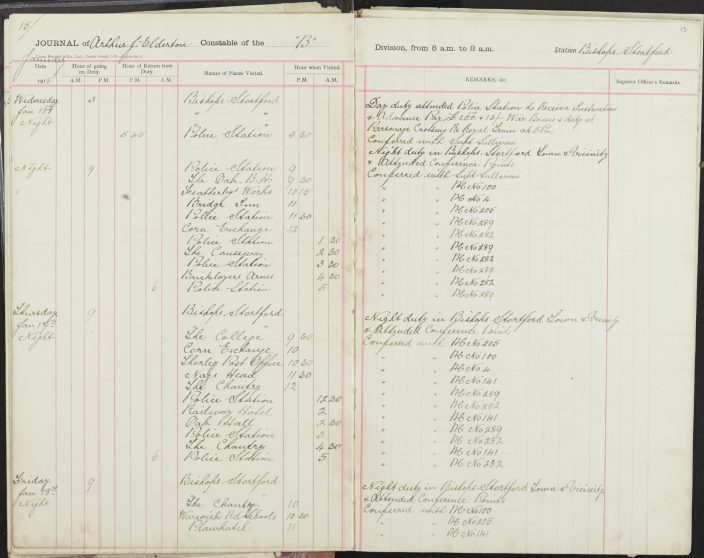 15
JOURNAL of Arthur J. Elderton Constable of the "B"
January
Date Hour of going on Duty. Hour of Return from Duty. Names of Places Visited. Hour when Visited.
1918 A.M. P.M. A.M. P.M. P.M. A.M.
Wednesday 3 Bishops Stortford
Jan 16th " "
Night "
5 45 Police Station 5 30
Night 9 Police Station 9
The Oak B.A. 9 30
Featherbys Works 10 15
Bridge Inn 11
Police Station 11 30
Corn Exchange 12
Police Station 1 30
The Causeway 2 30
Police Station 3 30
Bricklayers Arms 4 30
6 Police Station 5
Thursday 9 Bishops Stortford
Jan 17th "
Night The College 9 30
Corn Exchange 10
Post Office 10 30
Nags Head 11 30
The Chantry 12
Police Station 12 30
Railway Hotel 2
Oak Hall 2 30
Police Station 3
The Chantry 4 30
6 Police Station 5
Friday 9 Bishops Stortford
Jan 18th "
Night The Chantry 10
Warwick Rd Schools 10 30
Plawhatch 11
15
Division, from 8 a.m. to 8 a.m. Station Bishops Stortford
REMARKS, &c. Superior Officer's Remarks.
Day duty attended Police Station to Receive Instructions
& Advance Pay War Bonus & duty at
Parsonage Crossing Re Royal Train at 5 P.m.
Conferred with Supt Sullivan
Night duty in Bishops Stortford Town & Vicinity
& Attended Conference Points
Conferred with Supt Sullivan
" " PC No 100
" " PC No 4
" " PC No 205
" " PC No 289
" " PC No 282
" " PC No 289
" " PC No 282
" " PC No 289
" " PC No 282
" " PC No 289
Night duty in Bishops Stortford Town & Vicinity
& Attended Conference Points
Conferred with PC No 205
" " PC No 100
" " PC No 4
" " PC No 141
" " PC No 289
" " PC No 282
" " PC No 141
" " PC No 289
" " PC No 282
" " PC No 141
" " PC No 282
Night duty in Bishops Stortford Town & Vicinity
& Attended Conference Points
Conferred with PC No 100
" " PC No 205
" " PC No 141